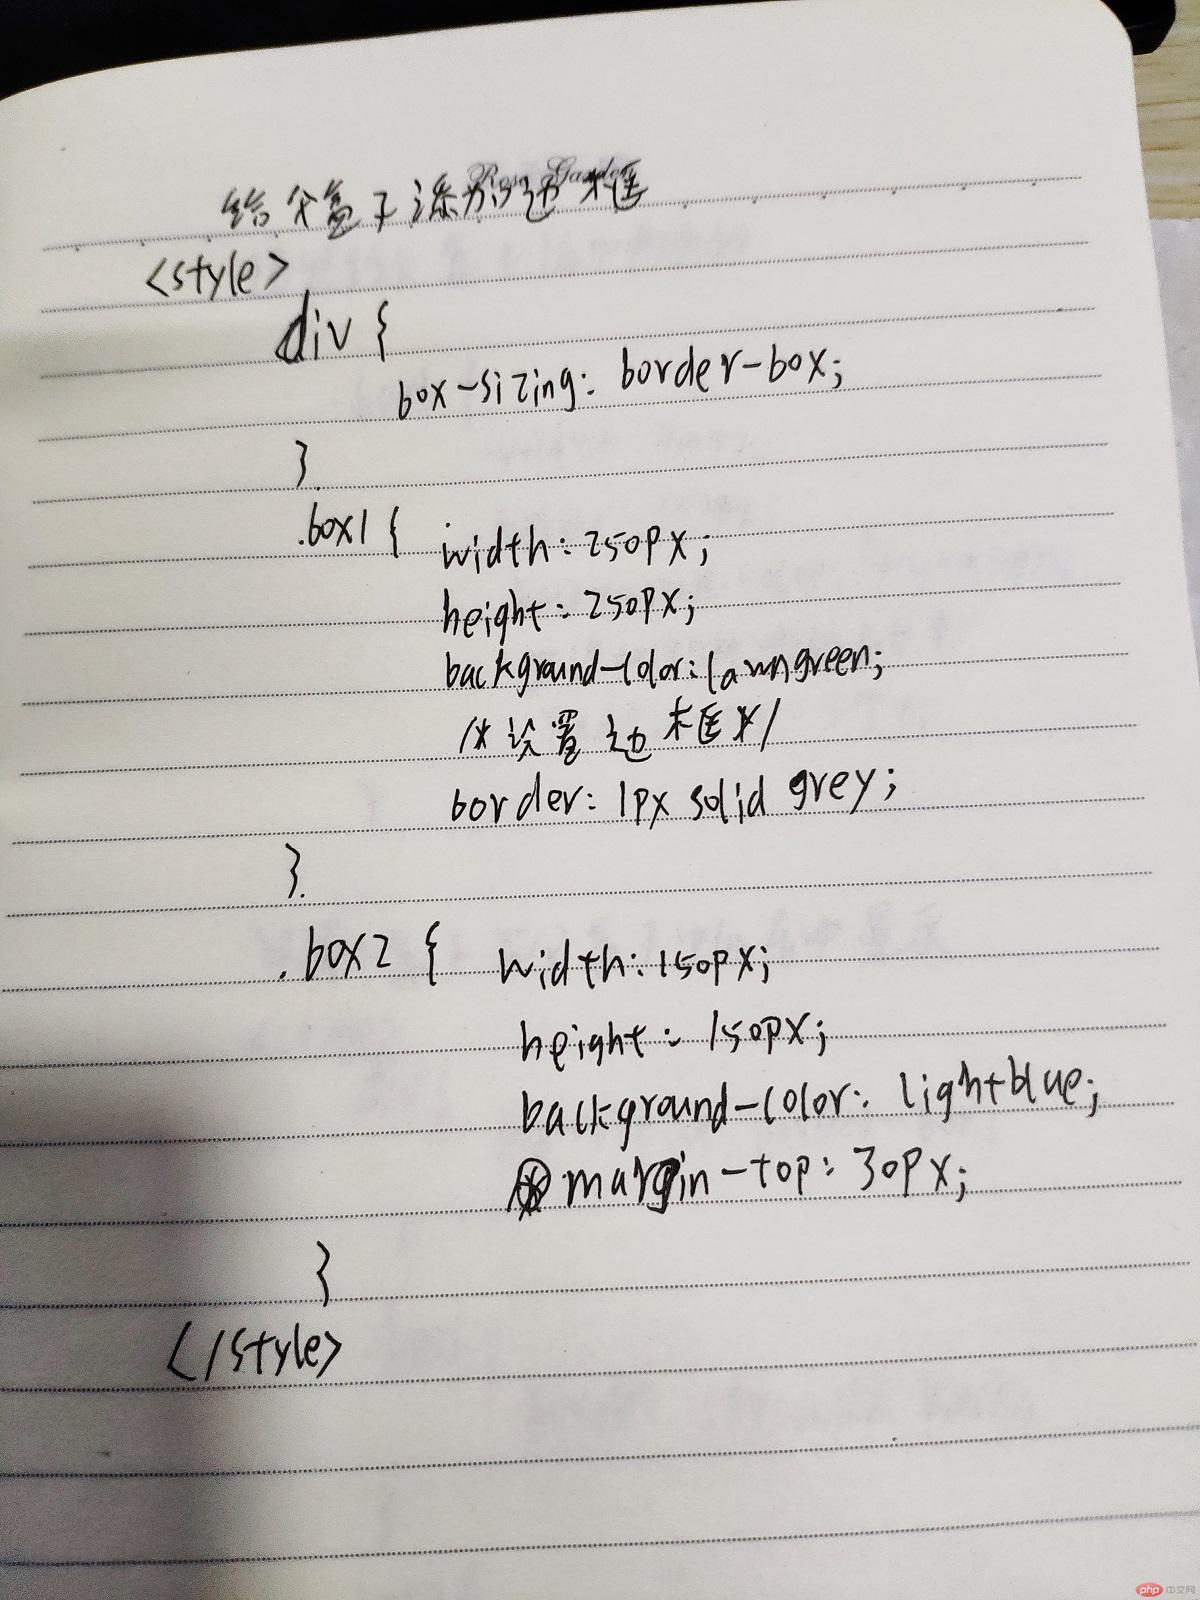 Rose Garden
给父盒子添加边框
<style>
div {
box-sizing: border-box;
}
.box1 { width: 250px;
height: 250px;
background-color: lawngreen;
/* 设置边框 */
border: 1px solid grey;
}
.box2 { width: 150px;
height: 150px;
background-color: lightblue;
margin-top: 30px;
}
</style>
php 中文网